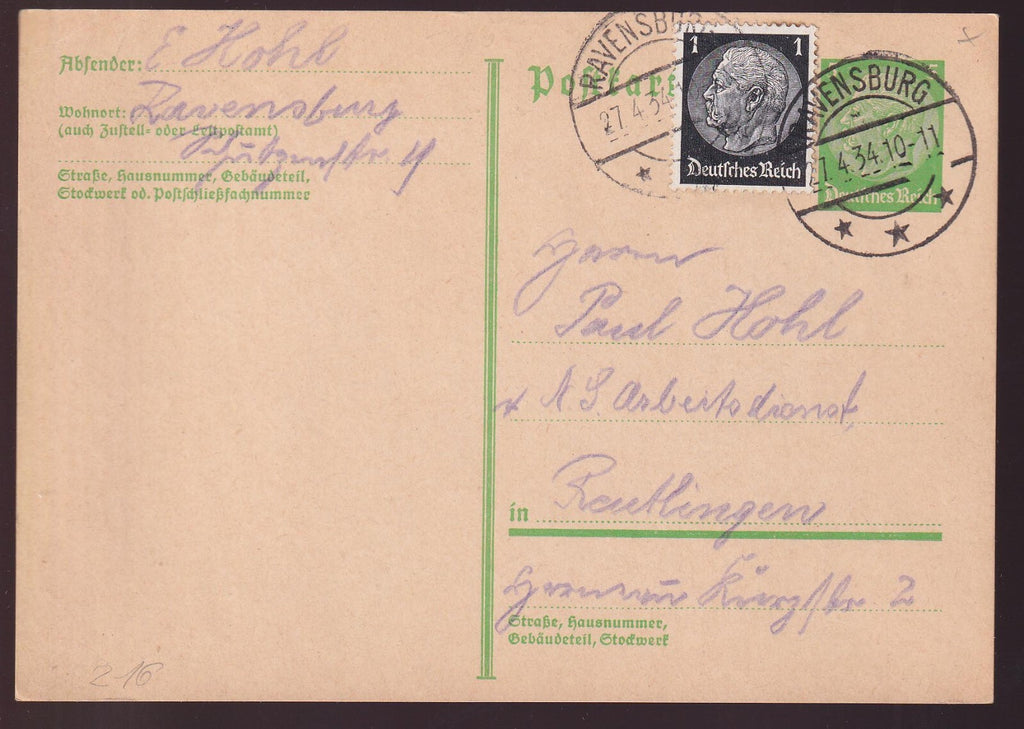 Absender: E Hohl
Wohnort: Ravensburg
(auch Zustell- oder Leitpostamt)
Schützenstr
Straße, Hausnummer, Gebäudeteil,
Stockwerk od. Postschließfachnummer
Postkarte
RAVENSBURG
27.4.34
1 1
Deutsches Reich
RAVENSBURG
27.4.34.10-11
Deutsches Reich
Herrn
Paul Hohl
N.S. Arbeitsdienst,
in Reutlingen
Hermann Kurzstr. 2
Straße, Hausnummer,
Gebäudeteil, Stockwerk
216